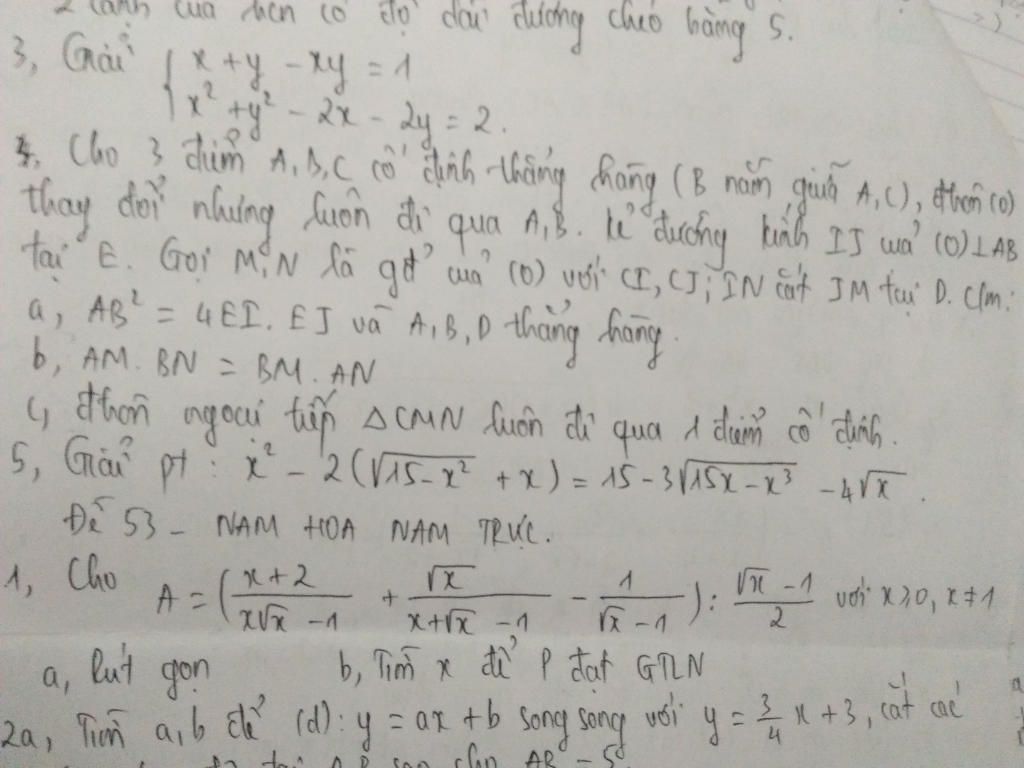 2 cạnh của hcn có độ dài đường chéo bằng 5.
3, Giải { x + y - xy = 1
x² + y² - 2x - 2y = 2.
4, Cho 3 điểm A, B, C cố định thẳng hàng (B nằm giữa A, C), đtròn (O)
thay đổi nhưng luôn đi qua A, B. kẻ đường kính IJ của (O) ⊥ AB
tại E. Gọi M, N là gđ của (O) với CI, CJ; IN cắt JM tại D. C/m:
a, AB² = 4EI. EJ và A, B, D thẳng hàng.
b, AM. BN = BM. AN
c, đtròn ngoại tiếp ΔCMN luôn đi qua 1 điểm cố định.
5, Giải pt: x² - 2(√(15-x²) + x) = 15 - 3√(15x-x³) - 4√x.
Đề 53 - NAM HOA NAM TRỰC.
1, Cho A = ((x+2)/(x√x - 1) + √x/(x+√x - 1) - 1/(√x - 1)) : (√x - 1)/2 với x ≥ 0, x ≠ 1
a, Rút gọn b, Tìm x để P đạt GTLN
2a, Tìm a, b để (d): y = ax + b song song với y = 3/4 x + 3, cắt các
tại A, B sao cho AB = 5